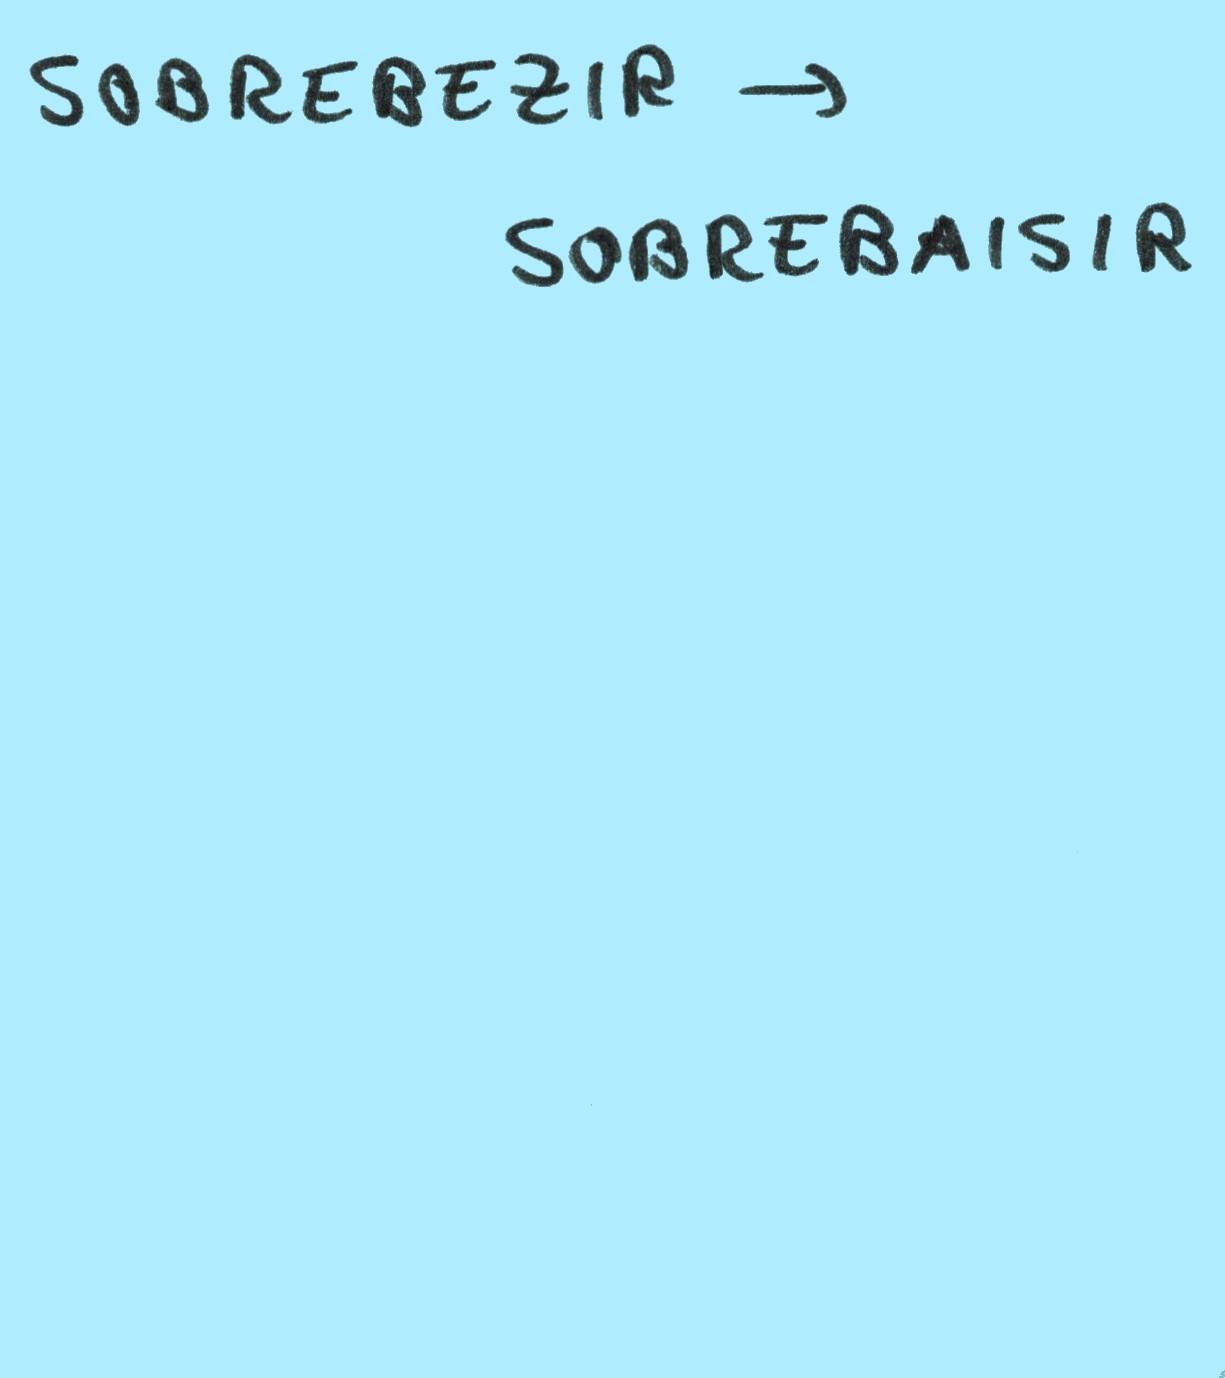 SOBREBEZIR →
SOBREBAISIR